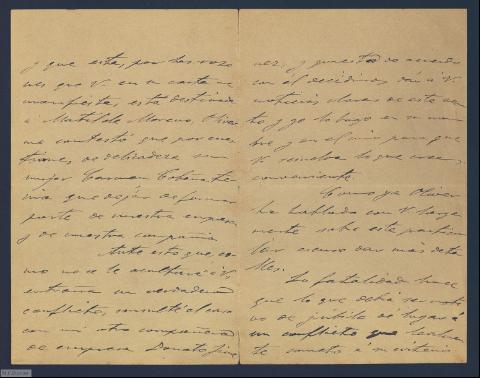 y que esta, por las razo
nes que V. en su carta me
manifiesta, está destinada
a Matilde Moreno, Oliver
me contestó que por cues
tiones de delicadeza su
mujer Carmen Cobeña ten
dria que dejar de formar
parte de nuestra empresa
y de nuestra compañia.
Ante esto que, co
mo no se le ocultará á V,
entraña un verdadero
conflicto, consulté el caso
con mi otro compañero
de empresa Donato Jime
nez, y puesto de acuerdo
con él decidimos dar á V.
noticias claras de este asun
to y yo lo hago en su nom
bre y en el mio para que
V. resuelva lo que crea
conveniente.
Como ya Oliver
ha hablado con V. larga
mente sobre este particu
lar excuso dar más deta
lles.
La fatalidad hace
que lo que debia ser moti
vo de júbilo dé lugar á
un conflicto que
te someto á